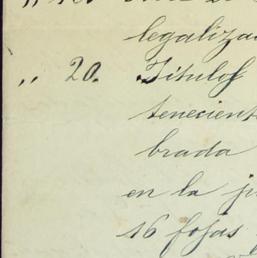 legaliza
„ 20. Títulos
tenecient
brada
en la ju
16 fojas